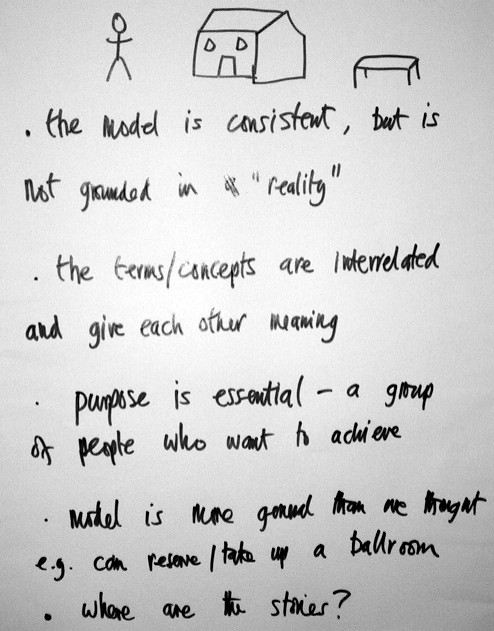 . the model is consistent, but is
not grounded in "reality"
. the terms/concepts are interrelated
and give each other meaning
. purpose is essential – a group
of people who want to achieve
. model is more than we thought
e.g. can reserve/take up a ballroom
. where are the stories?